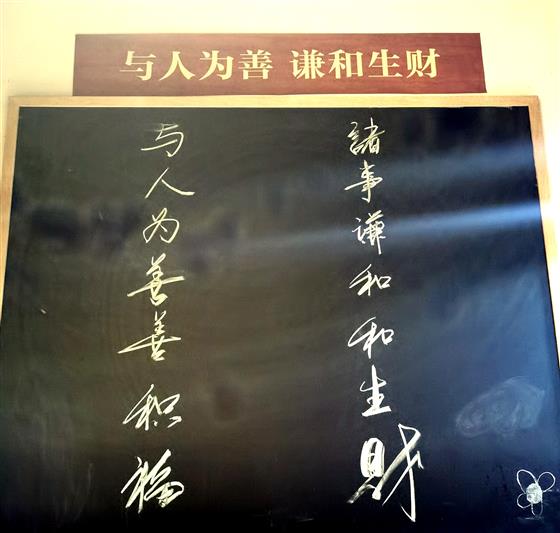 与人为善 谦和生财
諸事謙和和生财
与人为善善积福